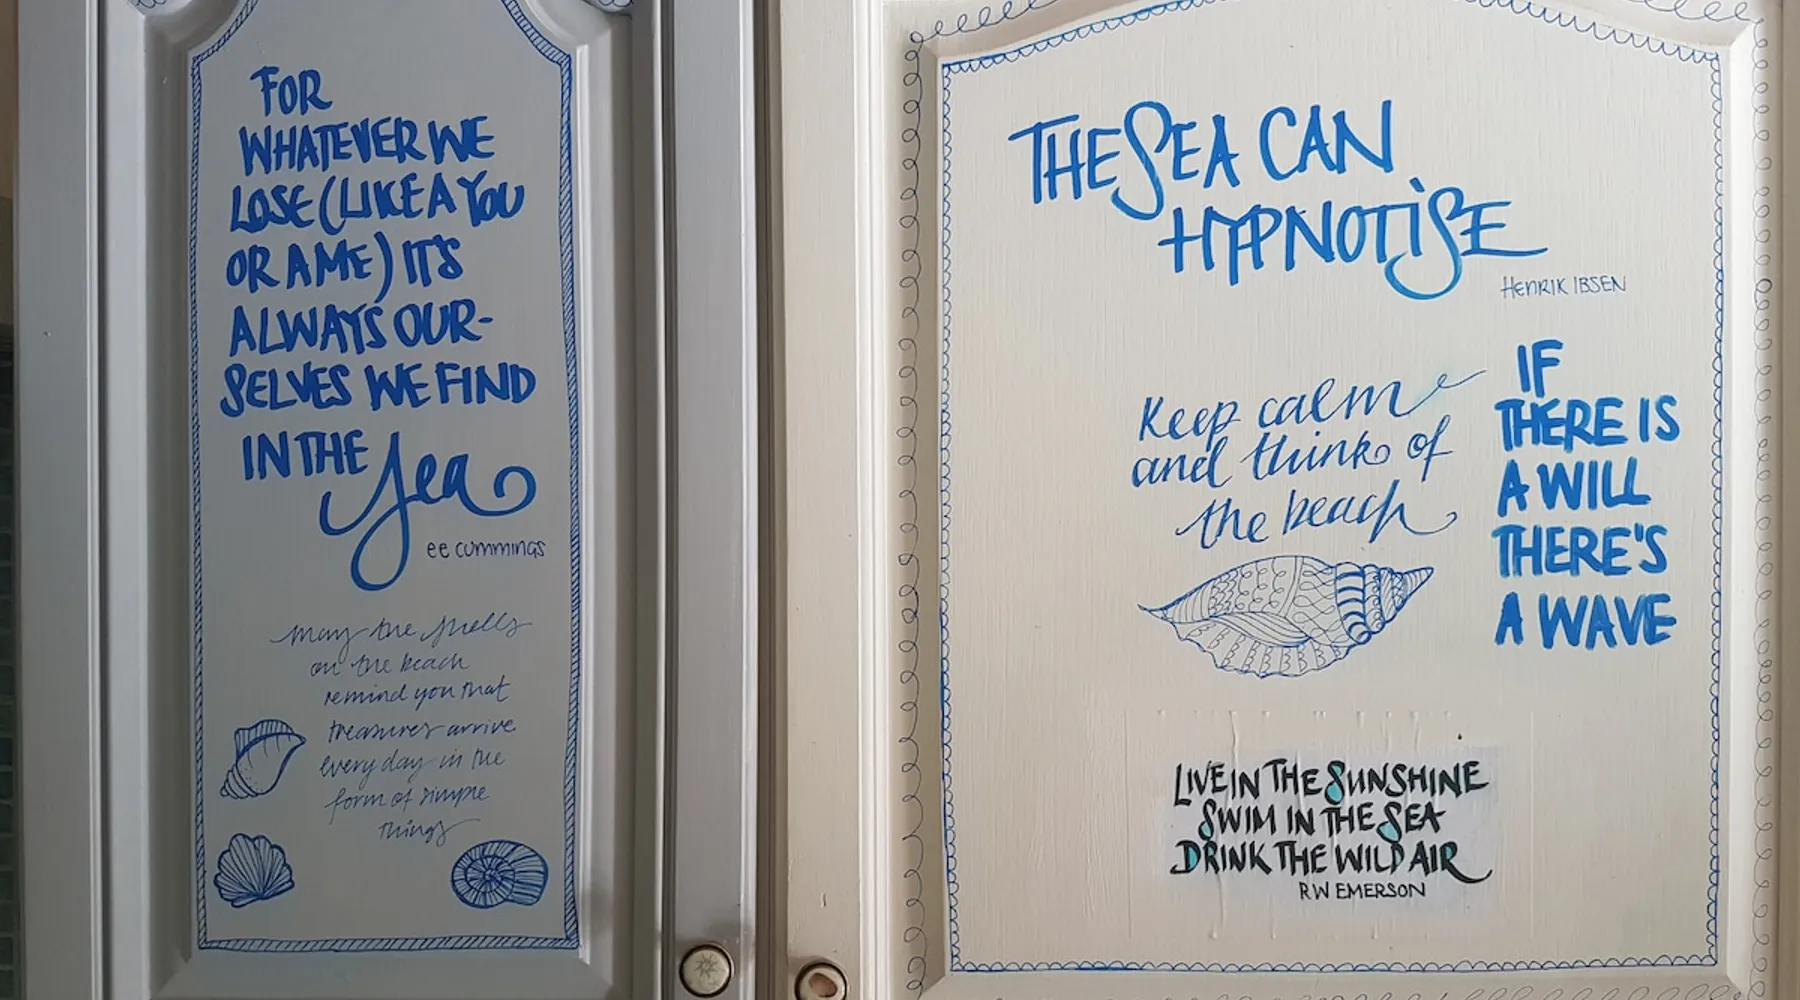 FOR
WHATEVER WE
LOSE (LIKE A YOU
OR A ME) IT'S
ALWAYS OUR-
SELVES WE FIND
IN THE Sea
ee cummings
may the shells
on the beach
remind you that
treasures arrive
every day in the
form of simple
things
THE SEA CAN
HYPNOTiSE
HENRIK IBSEN
Keep calm
and think of
the beach
IF
THERE IS
A WILL
THERE'S
A WAVE
LIVE IN THE SUNSHINE
SWIM IN THE SEA
DRINK THE WILD AIR
R W EMERSON